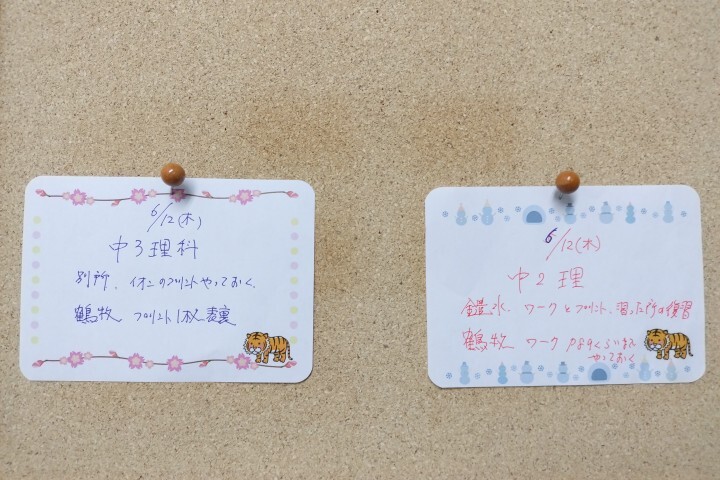 6/12(木)
中3理科
別所、イオンのプリントやっておく。
鶴牧 プリント1枚表裏
6/12(木)
中2理
鑓水 ワークとプリント、習った所は復習
鶴牧 ワーク P89くらいまで
やっておく